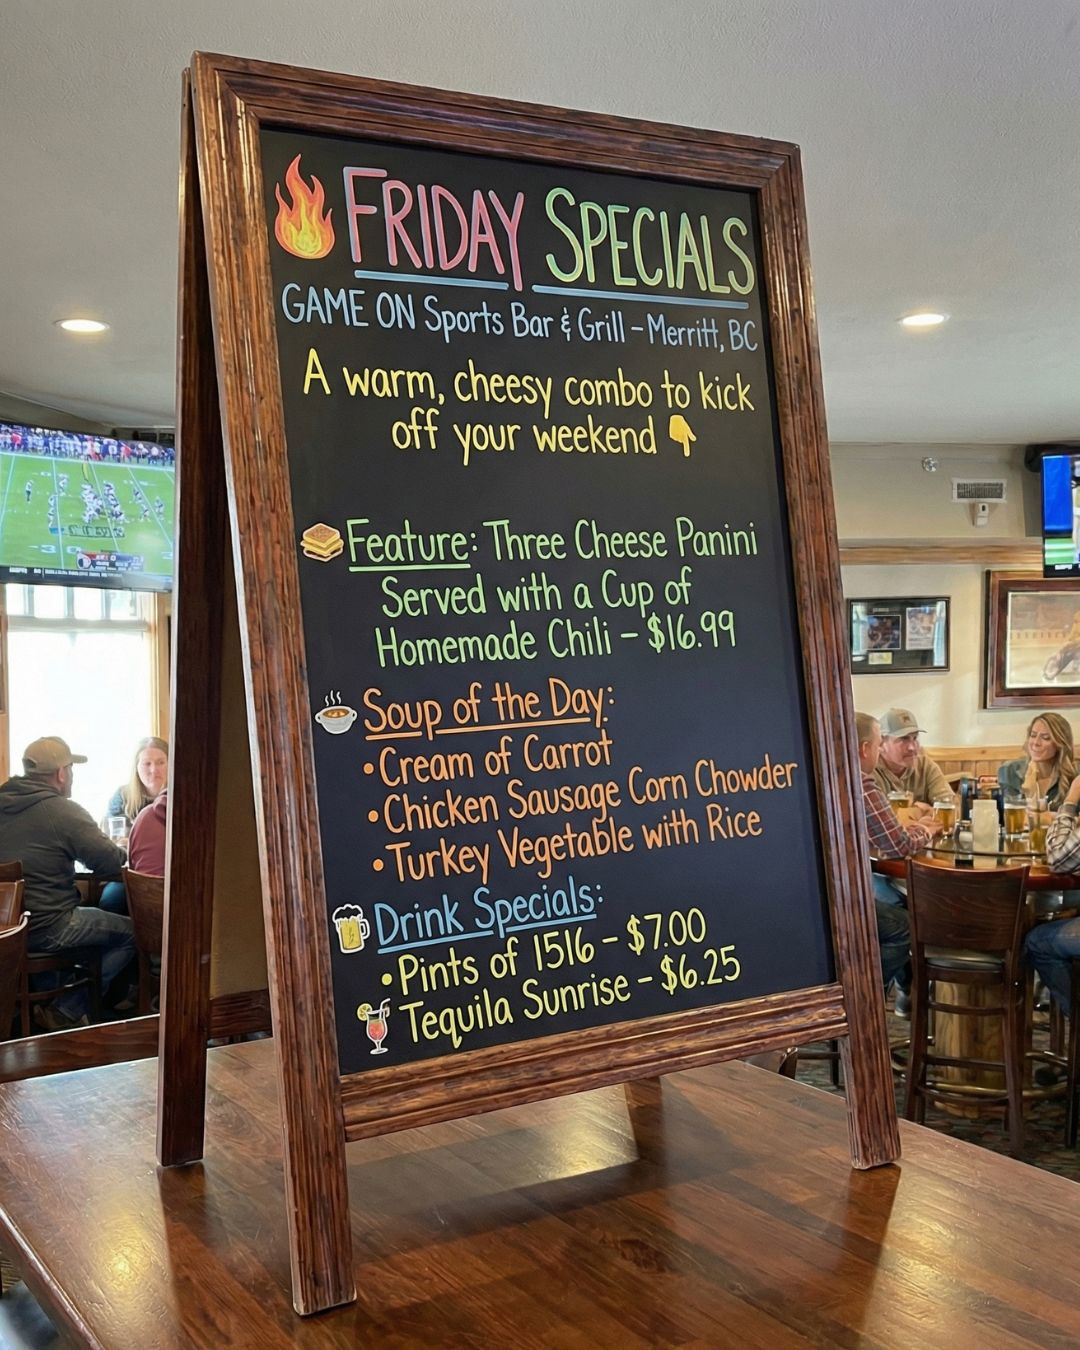 FRIDAY SPECIALS
GAME ON Sports Bar & Grill – Merritt, BC
A warm, cheesy combo to kick
off your weekend
Feature: Three Cheese Panini
Served with a Cup of
Homemade Chili – $16.99
Soup of the Day:
• Cream of Carrot
• Chicken Sausage Corn Chowder
• Turkey Vegetable with Rice
Drink Specials:
• Pints of 1516 – $7.00
Tequila Sunrise – $6.25